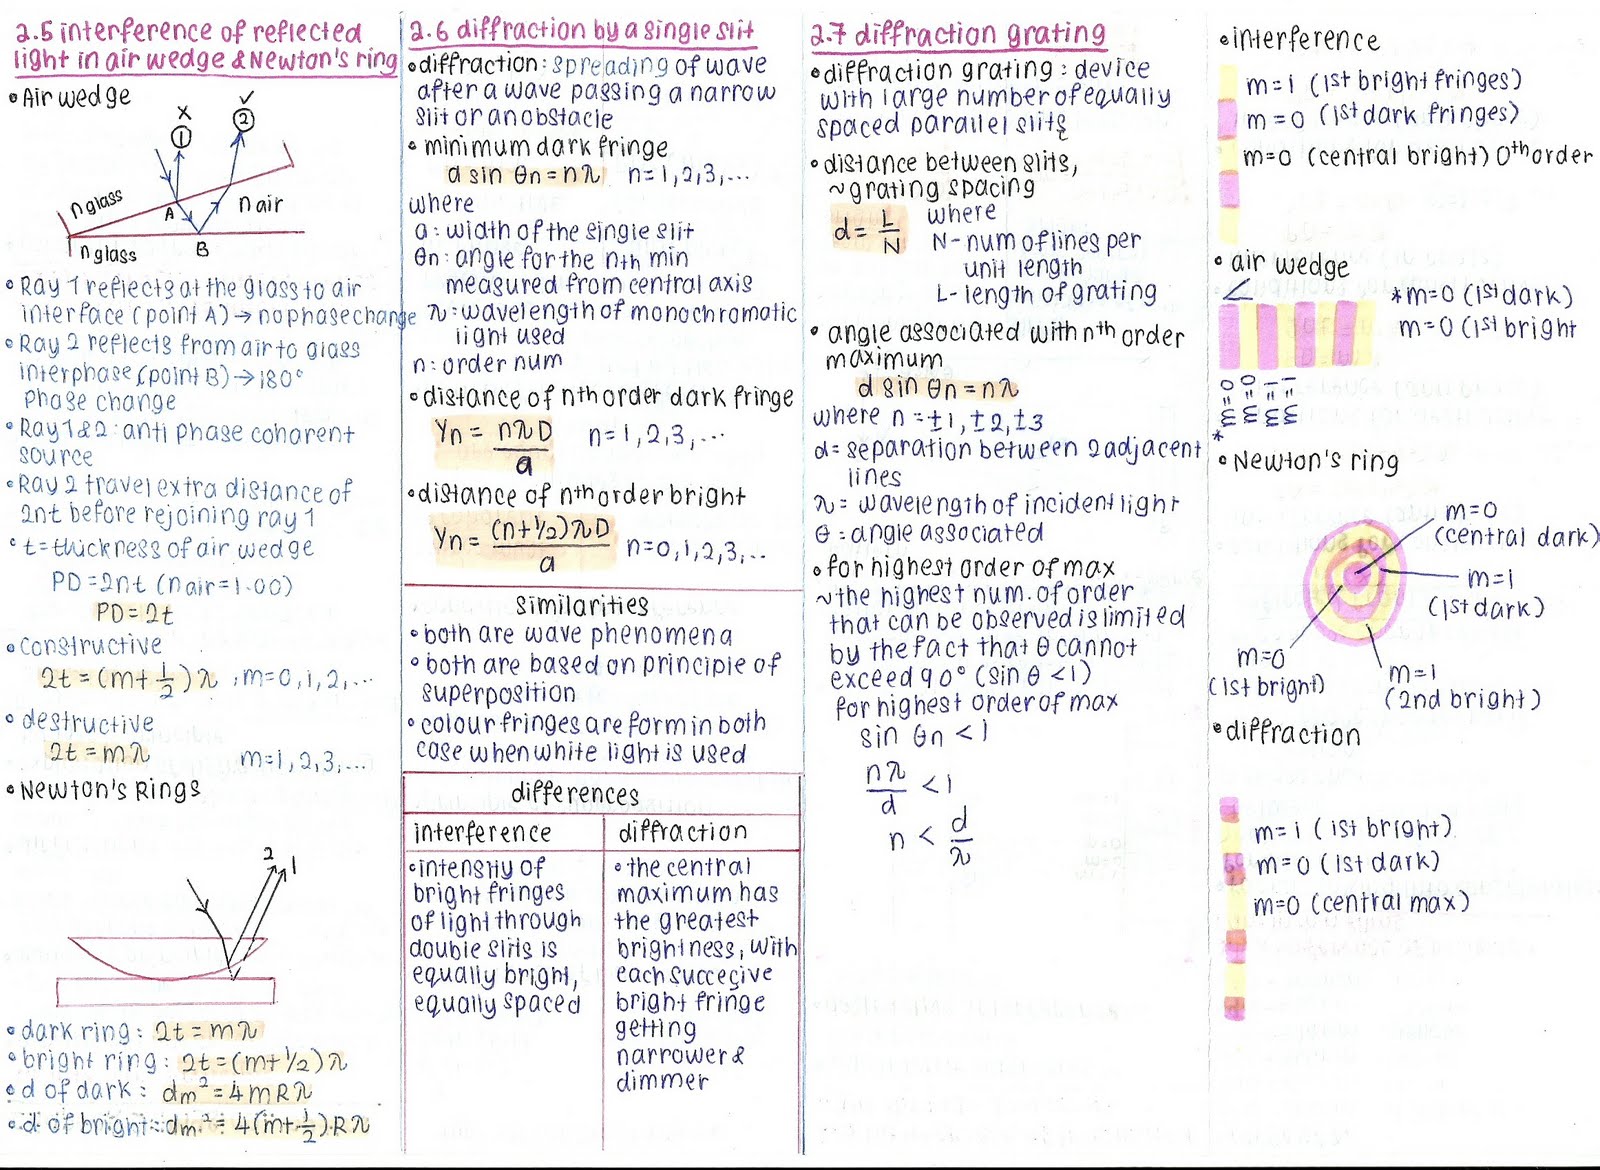 2.5 interference of reflected
light in air wedge & Newton's ring
• Air wedge
X
✓
1
2
n glass
A
n air
n glass
B
• Ray 1 reflects at the glass to air
interface (point A) → no phase change
• Ray 2 reflects from air to glass
interphase (point B) → 180°
phase change
• Ray 1 & 2 : anti phase coharent
source
• Ray 2 travel extra distance of
2nt before rejoining ray 1
• t = thickness of air wedge
PD = 2nt (n air = 1.00)
PD = 2t
• constructive
2t = (m + 1/2) λ , m = 0, 1, 2, ...
• destructive
2t = mλ m = 1, 2, 3, ...
• Newton's Rings
2
1
• dark ring : 2t = mλ
• bright ring : 2t = (m + 1/2) λ
• d of dark : dm² = 4mRλ
• d of bright : dm² = 4(m + 1/2) Rλ
2.6 diffraction by a single slit
• diffraction : spreading of wave
after a wave passing a narrow
slit or an obstacle
• minimum dark fringe
a sin θn = nλ n = 1, 2, 3, ...
where
a : width of the single slit
θn : angle for the nth min
measured from central axis
λ : wavelength of monochromatic
light used
n : order num
• distance of nth order dark fringe
Yn = nλD / a n = 1, 2, 3, ...
• distance of nth order bright
Yn = (n + 1/2) λD / a n = 0, 1, 2, 3, ...
similarities
• both are wave phenomena
• both are based on principle of
superposition
• colour fringes are form in both
case when white light is used
differences
interference
• intensity of
bright fringes
of light through
double slits is
equally bright,
equally spaced
diffraction
• the central
maximum has
the greatest
brightness, with
each succecive
bright fringe
getting
narrower &
dimmer
2.7 diffraction grating
• diffraction grating : device
with large number of equally
spaced parallel slits
• distance between slits,
~ grating spacing
d = L / N where
N - num of lines per
unit length
L - length of grating
• angle associated with nth order
maximum
d sin θn = nλ
where n = ±1, ±2, ±3
d = separation between 2 adjacent
lines
λ = wavelength of incident light
θ : angle associated
• for highest order of max
~ the highest num. of order
that can be observed is limited
by the fact that θ cannot
exceed 90° (sin θ < 1)
for highest order of max
sin θn < 1
nλ / d < 1
n < d / λ
• interference
m = 1 (1st bright fringes)
m = 0 (1st dark fringes)
m = 0 (central bright) 0th order
• air wedge
* m = 0 (1st dark)
m = 0 (1st bright
m = 0
m = 0
m = 1
m = 1
*
• Newton's ring
m = 0
(central dark)
m = 1
(1st dark)
m = 0
(1st bright)
m = 1
(2nd bright)
• diffraction
m = 1 (1st bright)
m = 0 (1st dark)
m = 0 (central max)